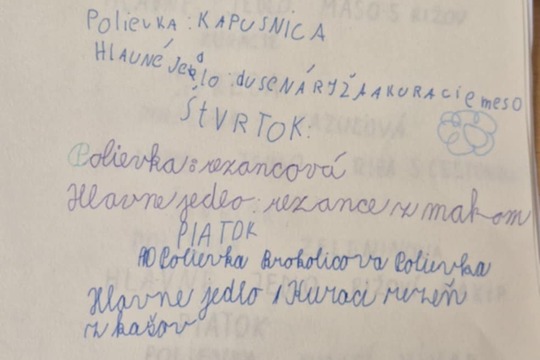 POLIEVKA: KAPUSNICA
HLAVNÉ JEDLO: DUSENÁ RYŽA A KURACIE MESO
ŠTVRTOK:
Polievka: rezancová
Hlavne jedlo: rezance z makom
PIATOK
Polievka Brokolicova Polievka
Hlavne jedlo: Kuraci rezeň
z kašov